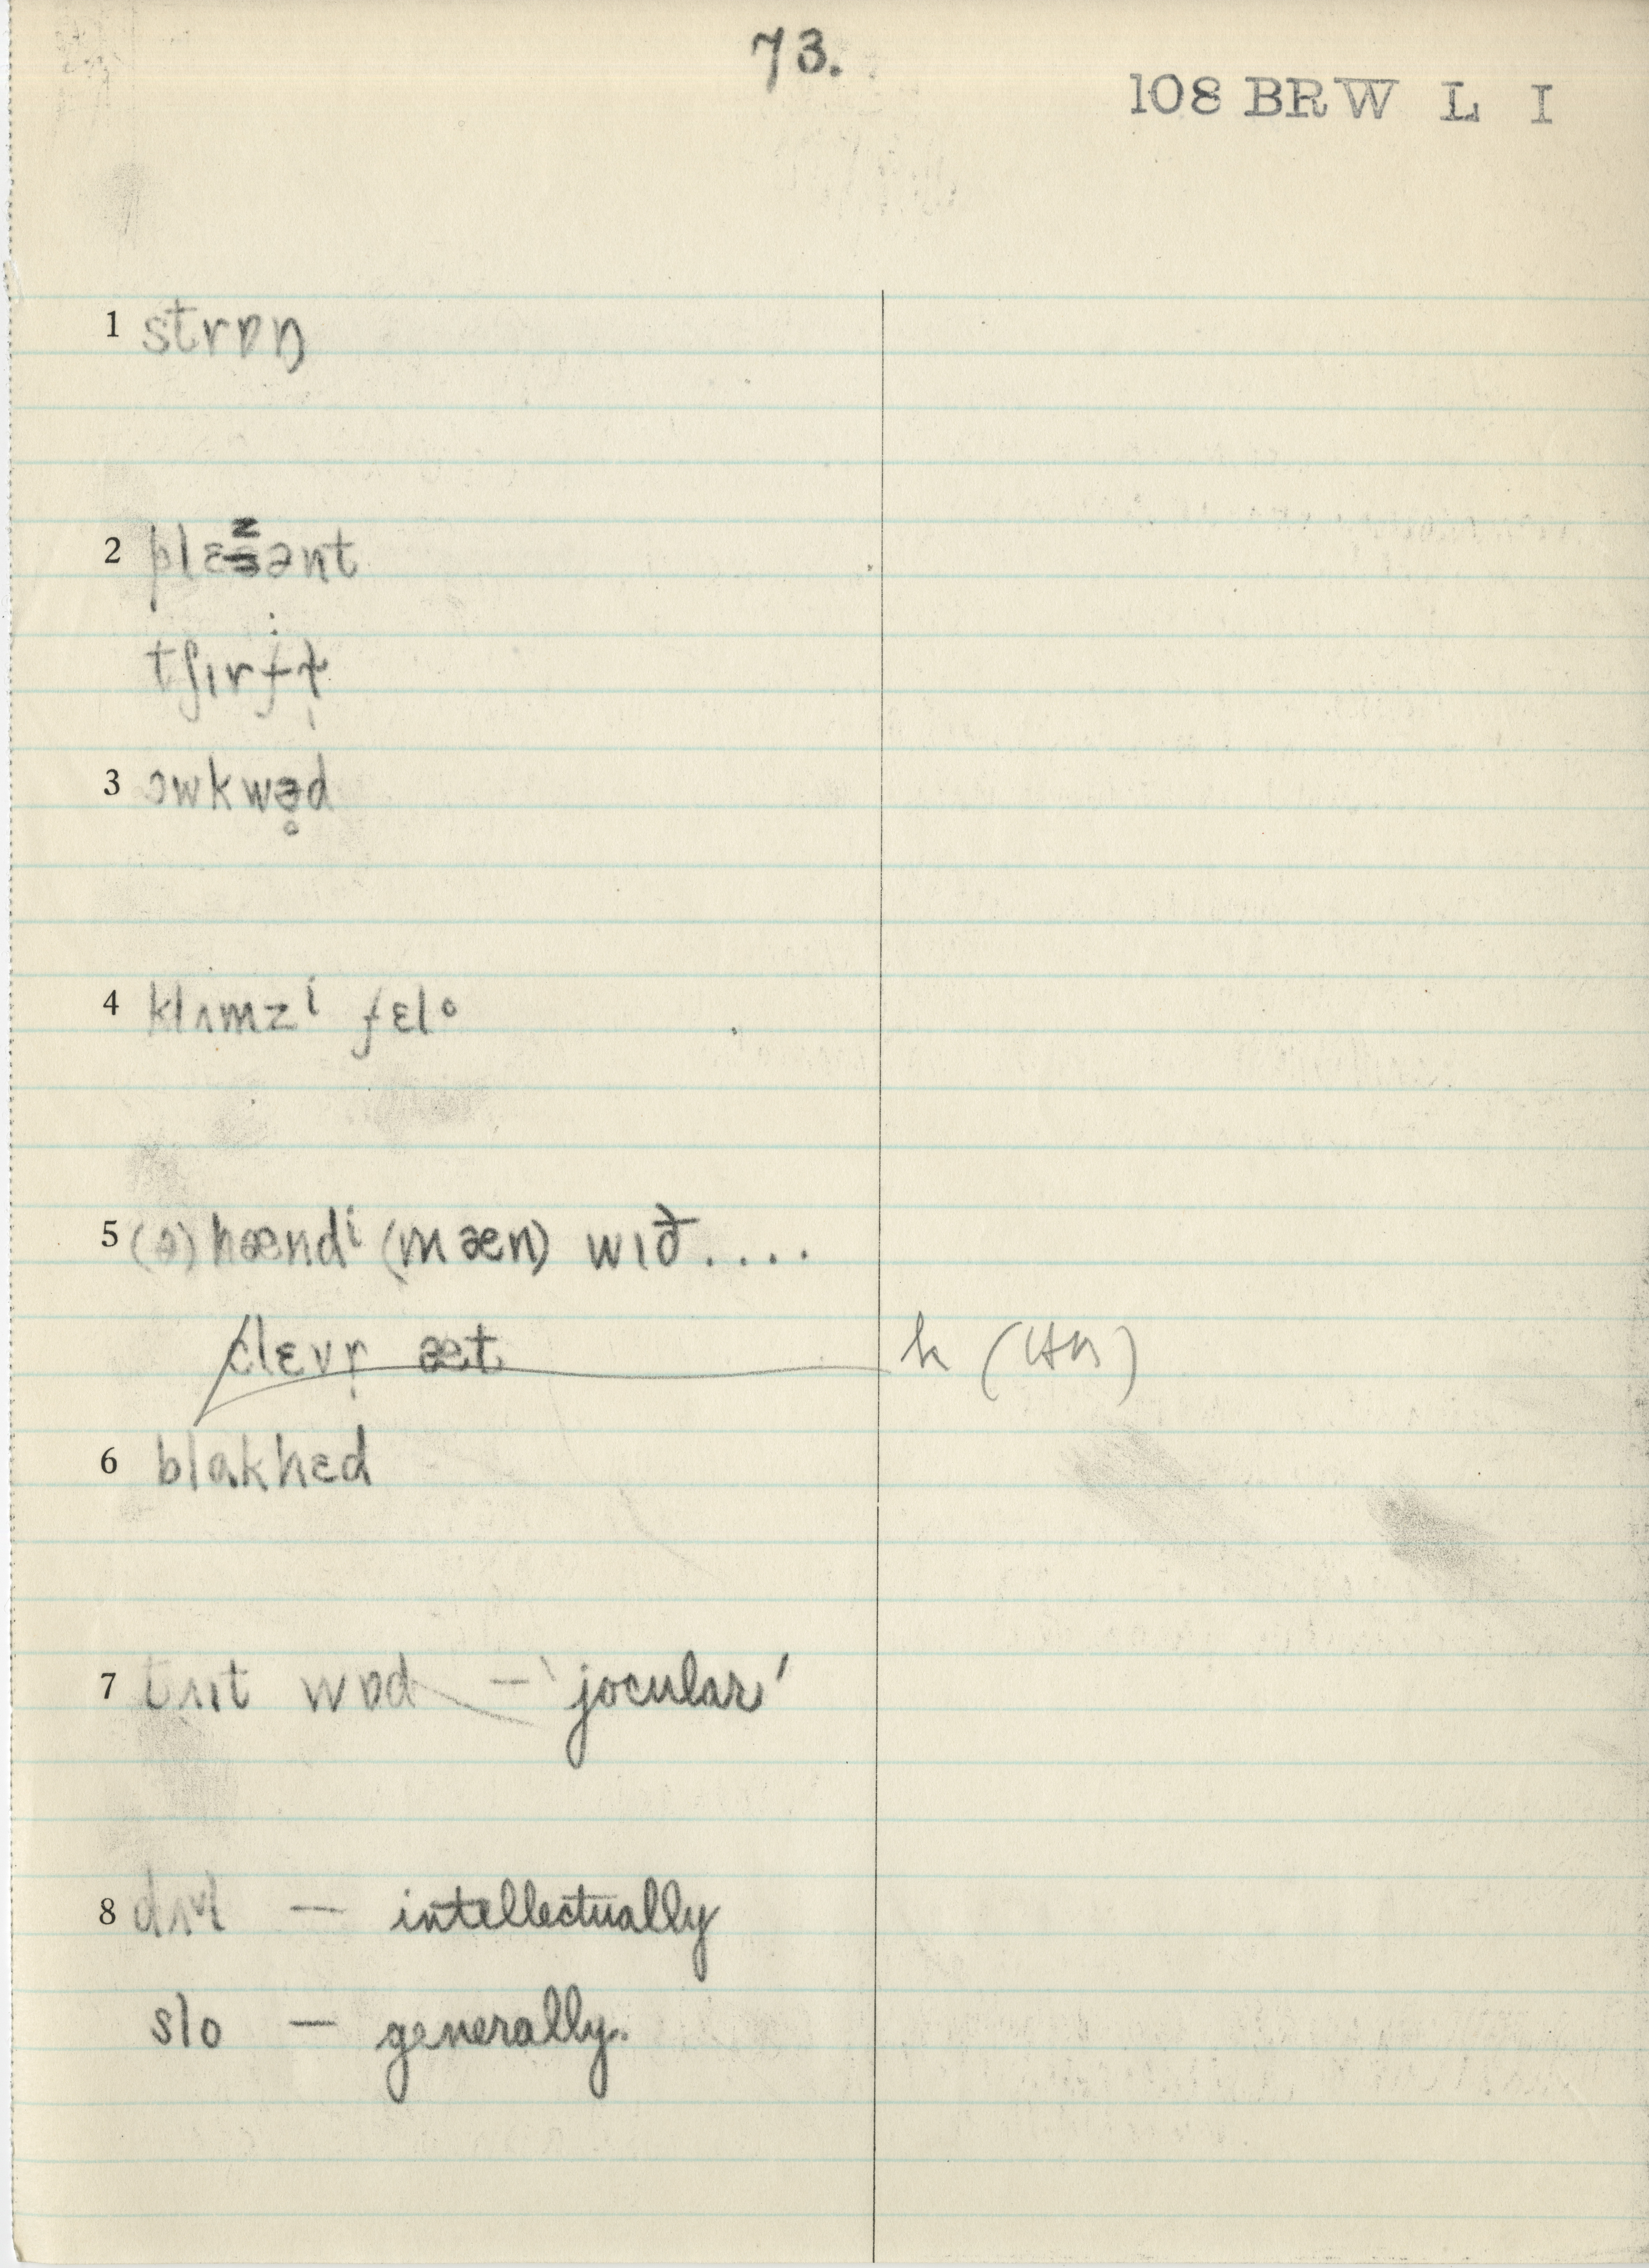 73.
108 BRW L I
1 strɒŋ
2 plɛzənt
tʃɪrfɫ̩
3 ɔwkwə̥d
4 klʌmzⁱ fɛlᵒ
5 (ə) hændⁱ (mæn) wɪð....
clɛvr̩ æt
k
6 blɑkhɛd
7 wɒd — 'jocular'
8 — intellectually
slo — generally.